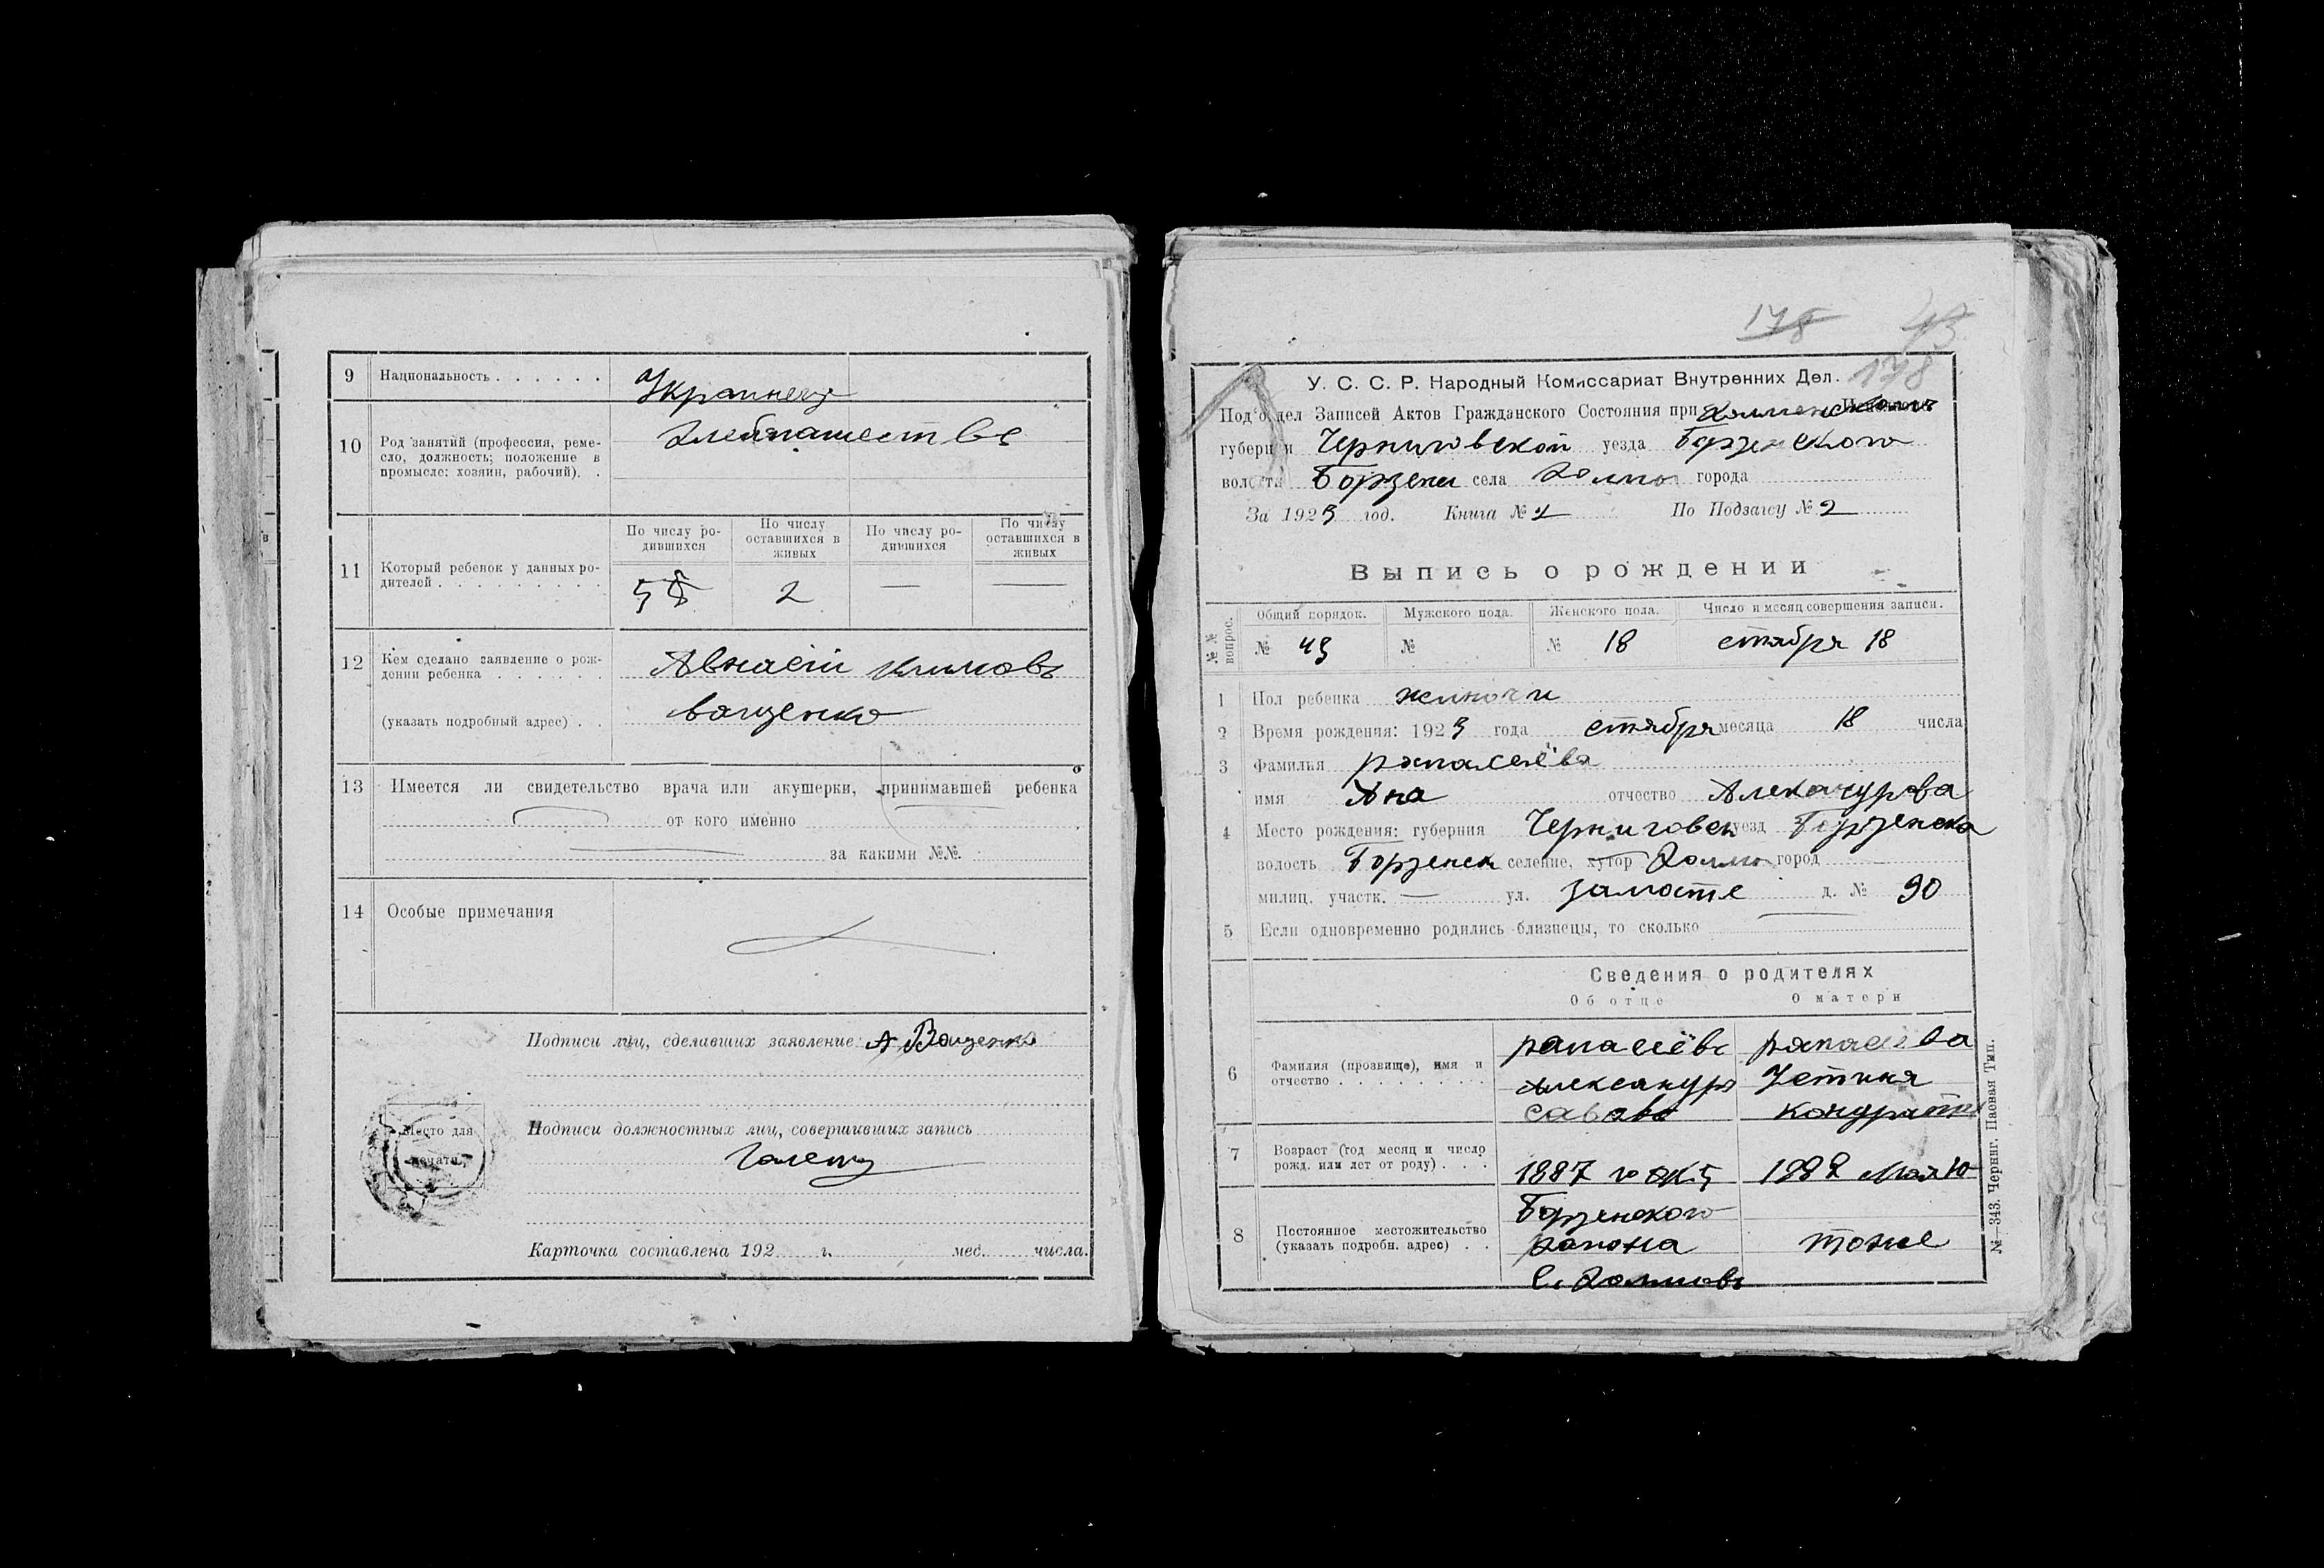 9 Национальность . . . . . . Украинец
10 Род занятий (профессия, реме-
сло, должность; положение в
промысле: хозяин, рабочий). .
По числу ро-
дившихся
По числу
оставшихся в
живых
По числу ро-
дившихся
По числу
оставшихся в
живых
11 Который ребенок у данных ро-
дителей . . . . . . . . .
2 — —
12 Кем сделано заявление о рож-
дении ребенка . . . . . .
климовъ
(указать подробный адрес) . . ващенко
13 Имеется ли свидетельство врача или акушерки, принимавшей ребенка
от кого именно
за какими №№.
14 Особые примечания
Подписи лиц, сделавших заявление: А Ващенко
Место для
печати.
Подписи должностных лиц, совершивших запись
Карточка составлена 192 г. мес. числа.
178 43
178
У. С. С. Р. Народный Комиссариат Внутренних Дел.
Под'отдел Записей Актов Гражданского Состояния при
губернии Черниговской уезда Борзенского
волости Борзенск села города
За 1923 год. Книга № По Подзагсу № 2
Выпись о рождении
№№ вопрос.
Общий порядок. Мужского пола. Женского пола. Число и месяц совершения записи.
№ 43 № № 18 стября 18
1 Пол ребенка жиночи
2 Время рождения: 1923 года стября месяца 18 числа
3 Фамилия
имя Ана отчество
4 Место рождения: губерния Черниговск уезд Борзенска
волость Борзенск селение, хутор город
милиц. участк. — ул. замосте д. № 90
5 Если одновременно родились близнецы, то сколько
Сведения о родителях
Об отце О матери
6 Фамилия (прозвище), имя и
отчество . . . . . . . . .
Александр Устиня
7 Возраст (год месяц и число
рожд. или лет от роду) . . .
1887
8 Постоянное местожительство
(указать подробн. адрес) . .
Борзенского
района тоже
с.
№—343. Черниг. Паевая Тип.